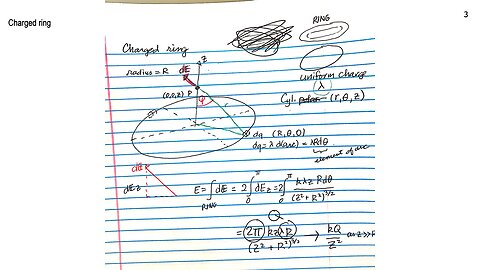 Charged ring
3
RING
Charged ring
radius = R
dE
z
(0,0,z) P
φ
uniform charge
(λ)
Cyl. (r,θ,z)
dq (R,θ,0)
dq = λ d(arc) = λRdθ
element of arc
dE
dEz
E = ∫dE = 2∫dEz = 2∫ kλz Rdθ / (z²+R²)^3/2
RING 0 π 0 π
Q
= (2π) kzλR / (z²+R²)^3/2 → kQ / z² as z>>R